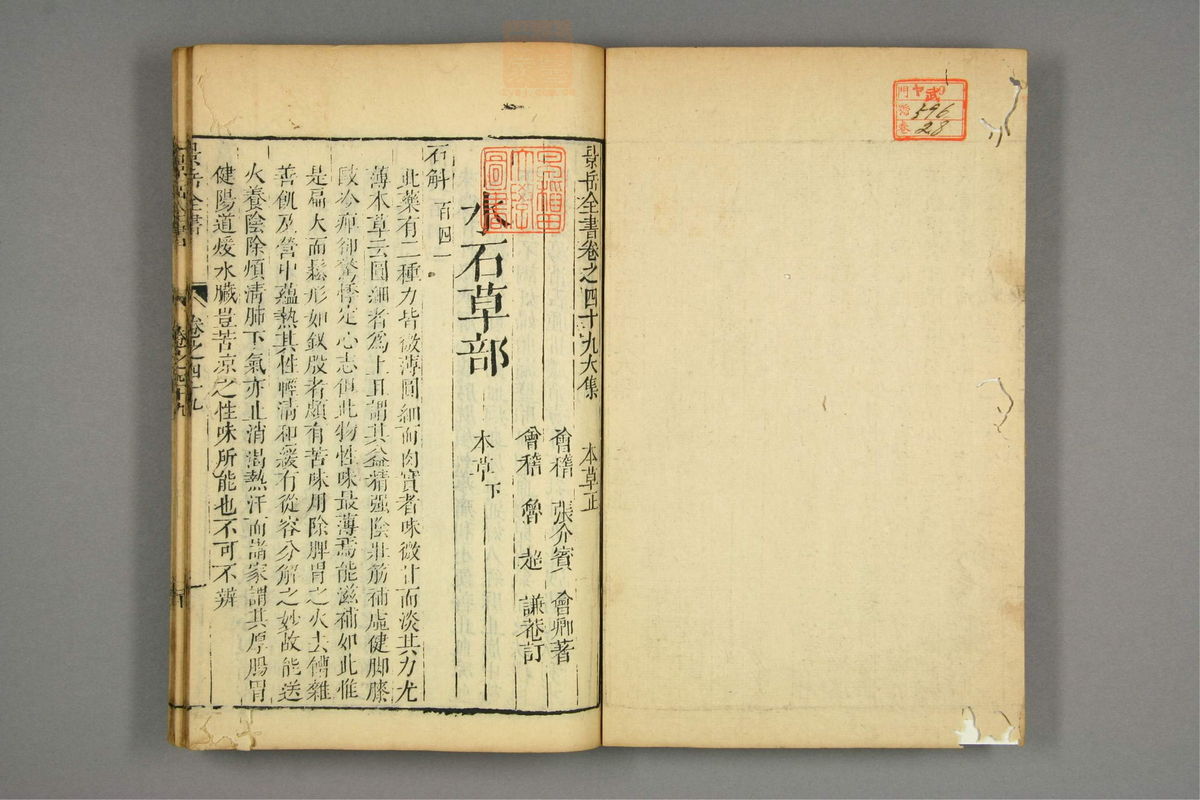 門 ヤ 武 9
號 596
卷 28
景岳全書卷之四十九大集 本草正
會稽 張介賓 會卿著
會稽 魯超 謙菴訂
早稲田大學圖書
本草下
水石草部
石斛 百四一
此藥有二種力皆微薄圓細而肉實者味微甘而淡其力尤
薄本草云圓細者為上且謂其益精强陰壯筋補虛健脚膝
敺冷痺卻驚悸定心志但此物性味最薄焉能滋補如此惟
是扁大而鬆形如釵股者頗有苦味用除脾胃之火去嘈雜
善飢及營中蘊熱其性輕清和緩有從容分解之妙故能送
火養陰除煩清肺下氣亦止消渴熱汗而諸家謂其厚腸胃
健陽道煖水臟豈苦凉之性味所能也不可不辨
景岳全書 卷之四十九